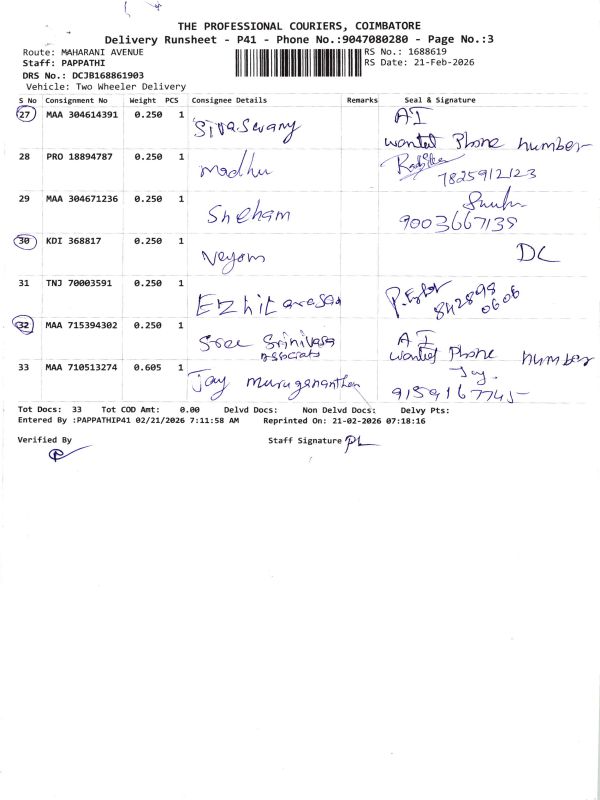 THE PROFESSIONAL COURIERS, COIMBATORE
Delivery Runsheet - P41 - Phone No.:9047080280 - Page No.:3
Route: MAHARANI AVENUE RS No.: 1688619
Staff: PAPPATHI RS Date: 21-Feb-2026
DRS No.: DCJB168861903
Vehicle: Two Wheeler Delivery
S No Consignment No Weight PCS Consignee Details Remarks Seal & Signature
27 MAA 304614391 0.250 1 AI
wanted Phone number
28 PRO 18894787 0.250 1 Madhu
7825912123
29 MAA 304671236 0.250 1 Sneham
9003667135
30 KDI 368817 0.250 1 DC
31 TNJ 70003591 0.250 1 Ezhilarasan
842898
0606
32 MAA 715394302 0.250 1 Sree Srinivasa AI
wanted Phone number
33 MAA 710513274 0.605 1 Jay Murugananthan Jay.
9159167745
Tot Docs: 33 Tot COD Amt: 0.00 Delvd Docs: Non Delvd Docs: Delvy Pts:
Entered By :PAPPATHIP41 02/21/2026 7:11:58 AM Reprinted On: 21-02-2026 07:18:16
Verified By Staff Signature